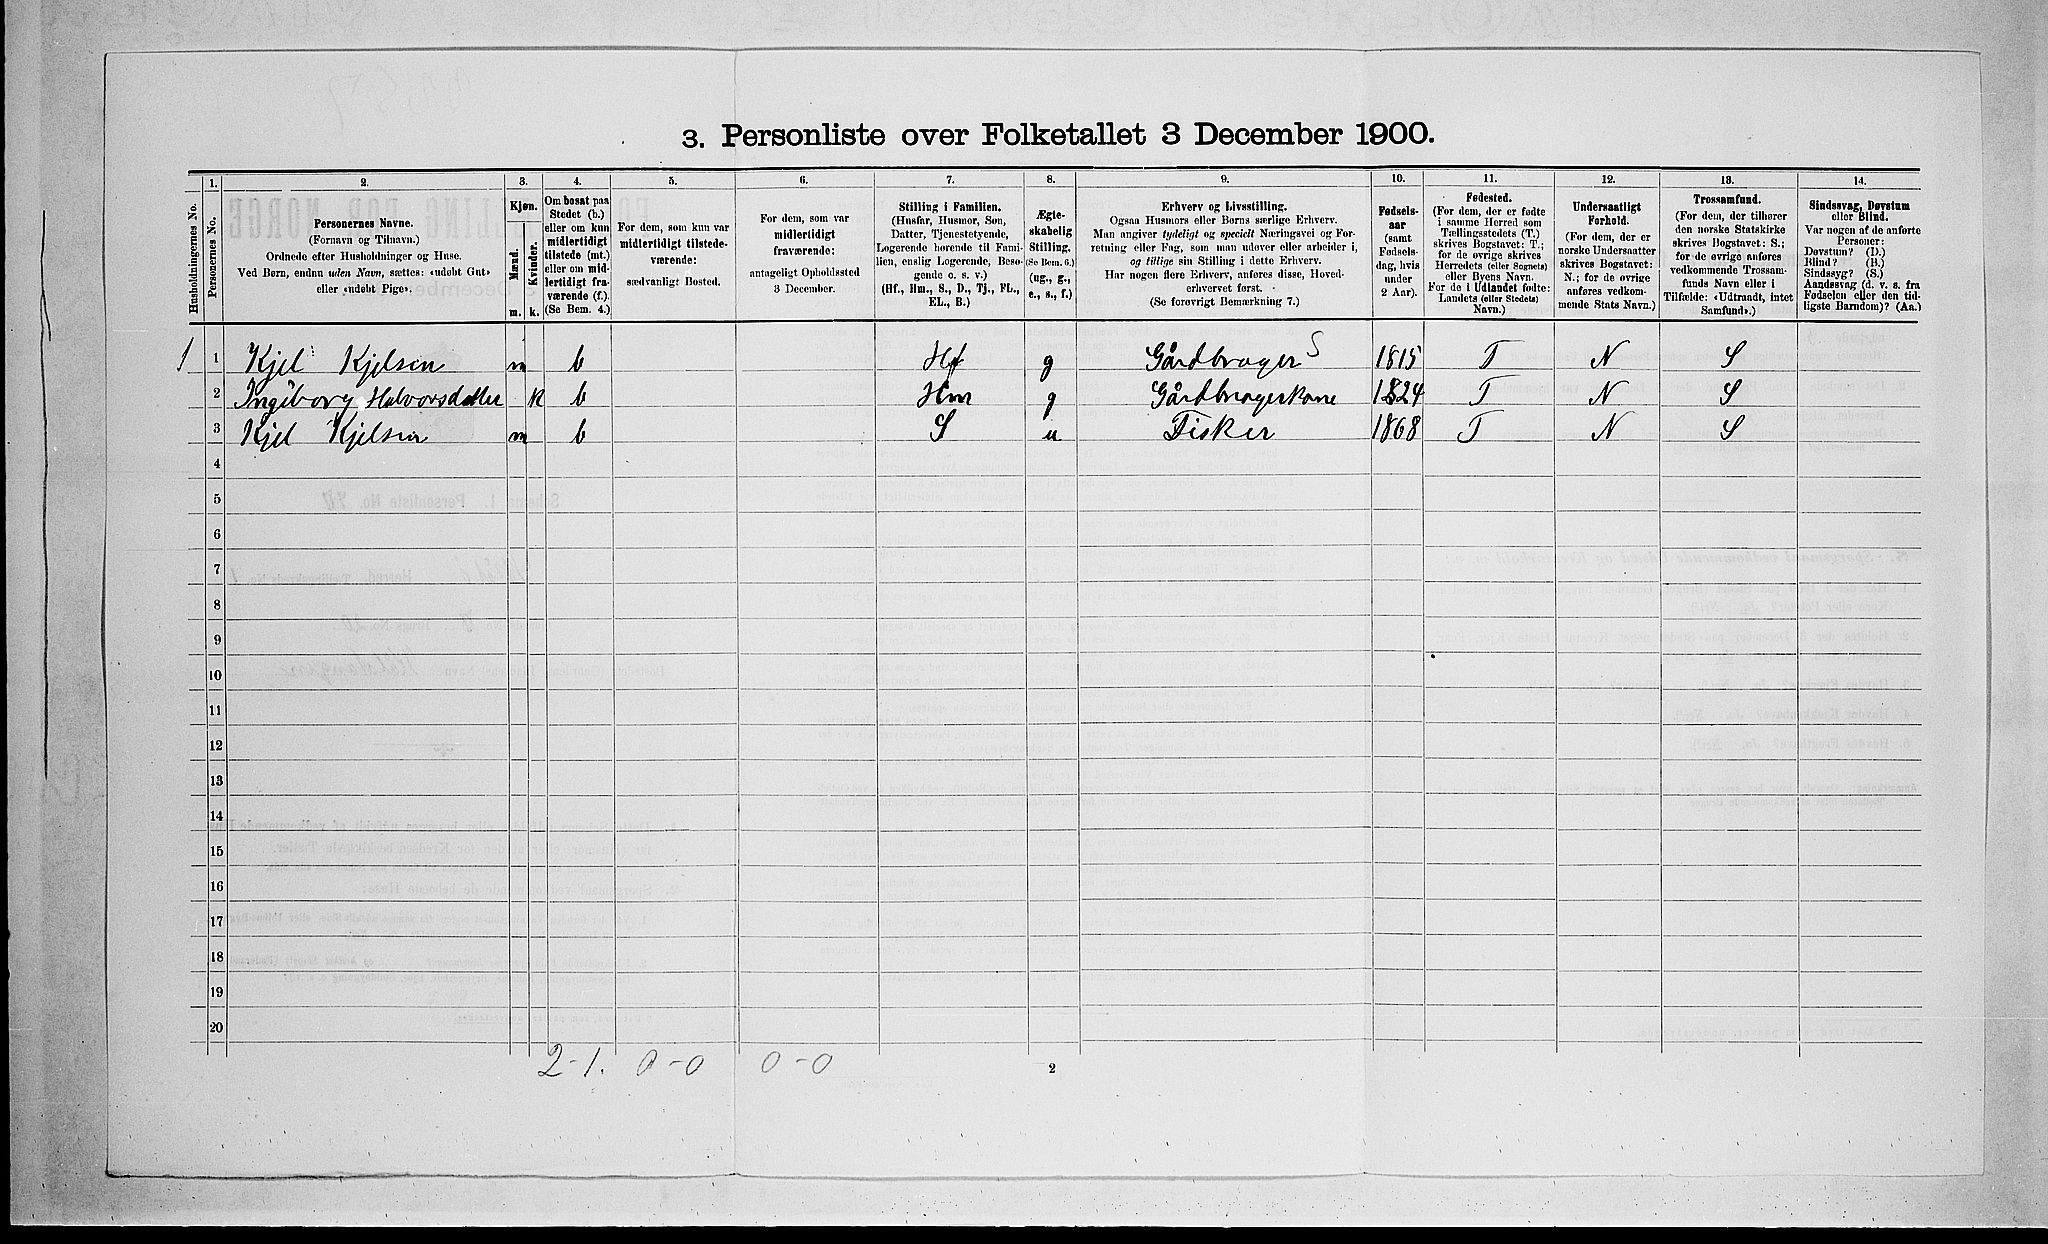 3. Personliste over Folketallet 3 December 1900.
Husholdningernes No.
1.
Personernes No.
2.
Personernes Navne.
(Fornavn og Tilnavn.)
Ordnede efter Husholdninger og Huse.
Ved Børn, endnu uden Navn, sættes: «udøbt Gut»
eller «udøbt Pige».
3.
Kjøn.
Mænd.
Kvinder.
m.
k.
4.
Om bosat paa
Stedet (b.)
eller om kun
midlertidigt
tilstede (mt.)
eller om mid-
lertidigt fra-
værende (f.).
(Se Bem. 4.)
5.
For dem, som kun var
midlertidigt tilstede-
værende:
sædvanligt Bosted.
6.
For dem, som var
midlertidigt
fraværende:
antageligt Opholdssted
3 December.
7.
Stilling i Familien.
(Husfar, Husmor, Søn,
Datter, Tjenestetyende,
Logerende hørende til Fami-
lien, enslig Logerende, Besø-
gende o. s. v.)
(Hf., Hm., S., D., Tj., FL.,
EL., B.)
8.
Ægte-
skabelig
Stilling.
(Se Bem. 6.)
(ug., g.,
e., s., f.)
9.
Erhverv og Livsstilling.
Ogsaa Husmors eller Børns særlige Erhverv.
Man angiver tydeligt og specielt Næringsvei og For-
retning eller Fag, som man udøver eller arbeider i,
og tillige sin Stilling i dette Erhverv.
Har nogen flere Erhverv, anføres disse, Hoved-
erhvervet først.
(Se forøvrigt Bemærkning 7.)
10.
Fødsels-
aar
(samt
Fødsels-
dag, hvis
under
2 Aar).
11.
Fødested.
(For dem, der er fødte
i samme Herred som
Tællingsstedets (T.)
skrives Bogstavet: T.;
for de øvrige skrives
Herredets (eller Sognets)
eller Byens Navn.
For de i Udlandet fødte:
Landets (eller Stedets)
Navn.)
12.
Undersaatligt
Forhold.
(For dem, der er
norske Undersaatter
skrives Bogstavet:
N.; for de øvrige
anføres vedkom-
mende Stats Navn.)
13.
Trossamfund.
(For dem, der tilhører
den norske Statskirke
skrives Bogstavet: S.;
for de øvrige anføres
vedkommende Trossam-
funds Navn eller i
Tilfælde: «Udtraadt, intet
Samfund».)
14.
Sindssvag, Døvstum
eller Blind.
Var nogen af de anførte
Personer:
Døvstum? (D.)
Blind? (B.)
Sindssyg? (S.)
Aandssvag (d. v. s. fra
Fødselen eller den tid-
ligste Barndom)? (Aa.)
1 1 Kjel Kjelsen m b Hf g Gårdbruger S 1815 T N S
2 Ingeborg Halvorsdatter k b Hm g Gårdbrugerkone 1824 T N S
3 Kjel Kjelsen m b S u Fisker 1868 T N S
4
5
6
7
8
9
10
11
12
13
14
15
16
17
18
19
20
2-1. 0-0 0-0 2